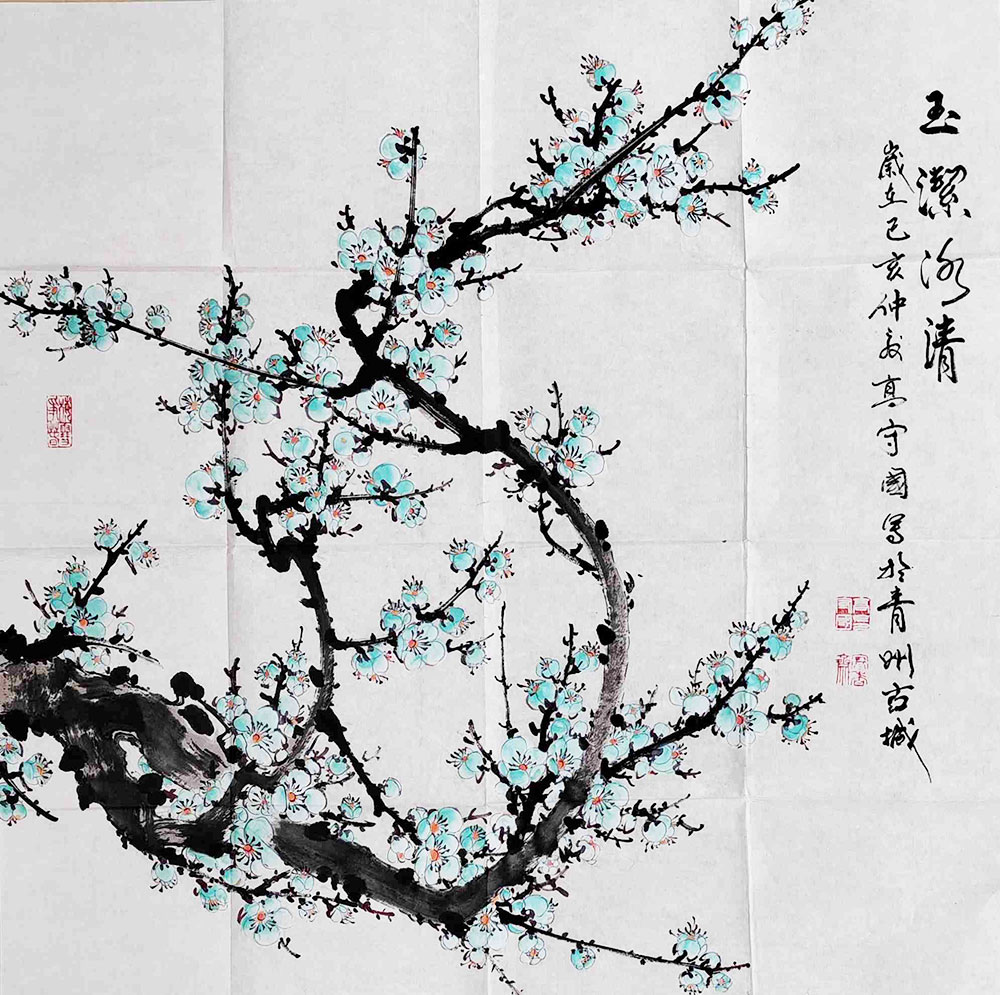 玉潔冰清
歲在己亥仲夏高守國寫於青州古城